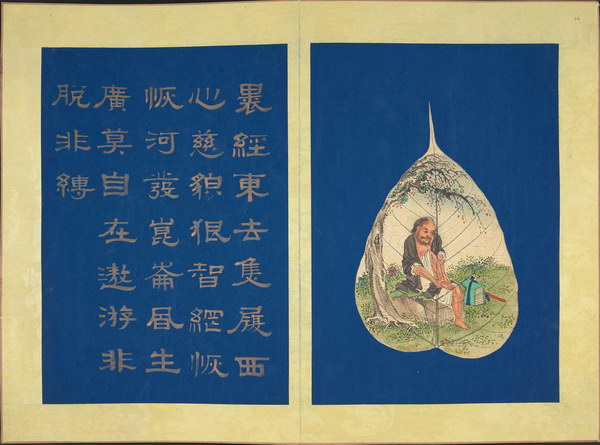 裹經東去隻履西
心慈貌狠智網恢
恢河發崑崙凬生
廣莫自在遨游非
脫非縛